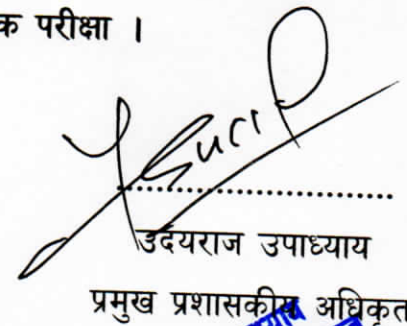 क परीक्षा ।
उदयराज उपाध्याय
प्रमुख प्रशासकीय अधिकृत